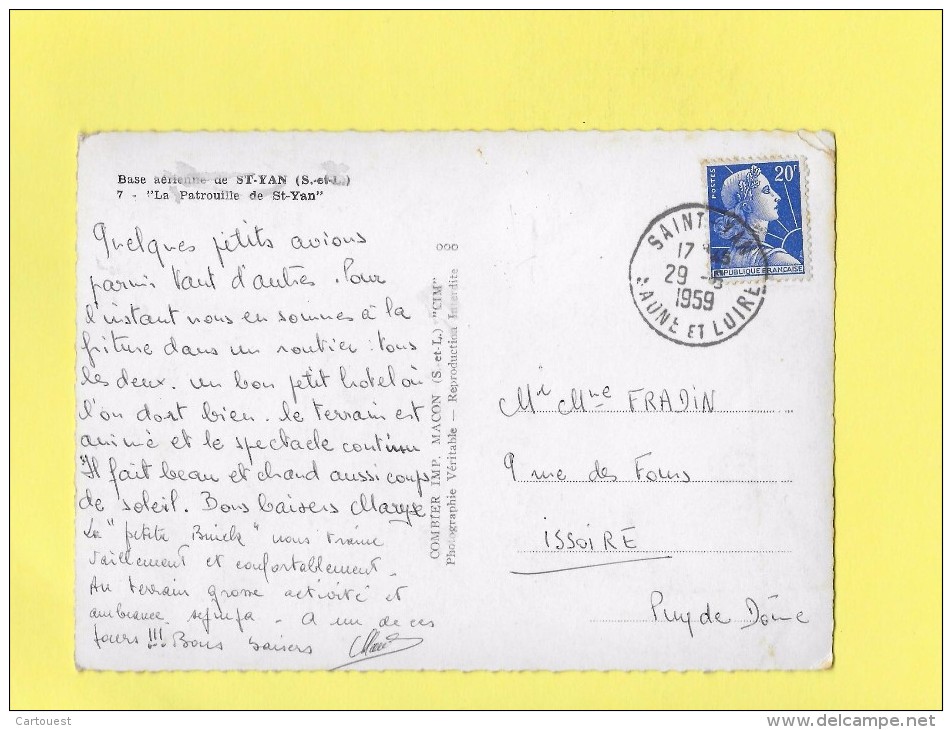 Base aérienne de ST-YAN (S.-et-L.)
7 - "La Patrouille de St-Yan"
Quelques petits avions
parmi tant d'autres. Pour
l'instant nous en sommes à la
friture dans un routier : tous
les deux. un bon petit hotel où
l'on dort bien. le terrain est
animé et le spectacle continu
Il fait beau et chaud aussi coups
de soleil. Bons baisers Maryse
La "petite Buick" nous traine
vaillement et confortablement _
Au terrain grosse activité et
ambiance - A un de ces
jours !!! Bons baisers
COMBIER IMP. MACON (S.-et-L.) "CIM"
Photographie Véritable — Reproduction Interdite
POSTES
20F
REPUBLIQUE FRANÇAISE
SAINT YAN
17
29
1959
SAONE ET LOIRE
Mr Mme FRADIN
9 rue des Fours
ISSOIRE
Puy de Dôme
Cartouest
www.delcampe.net